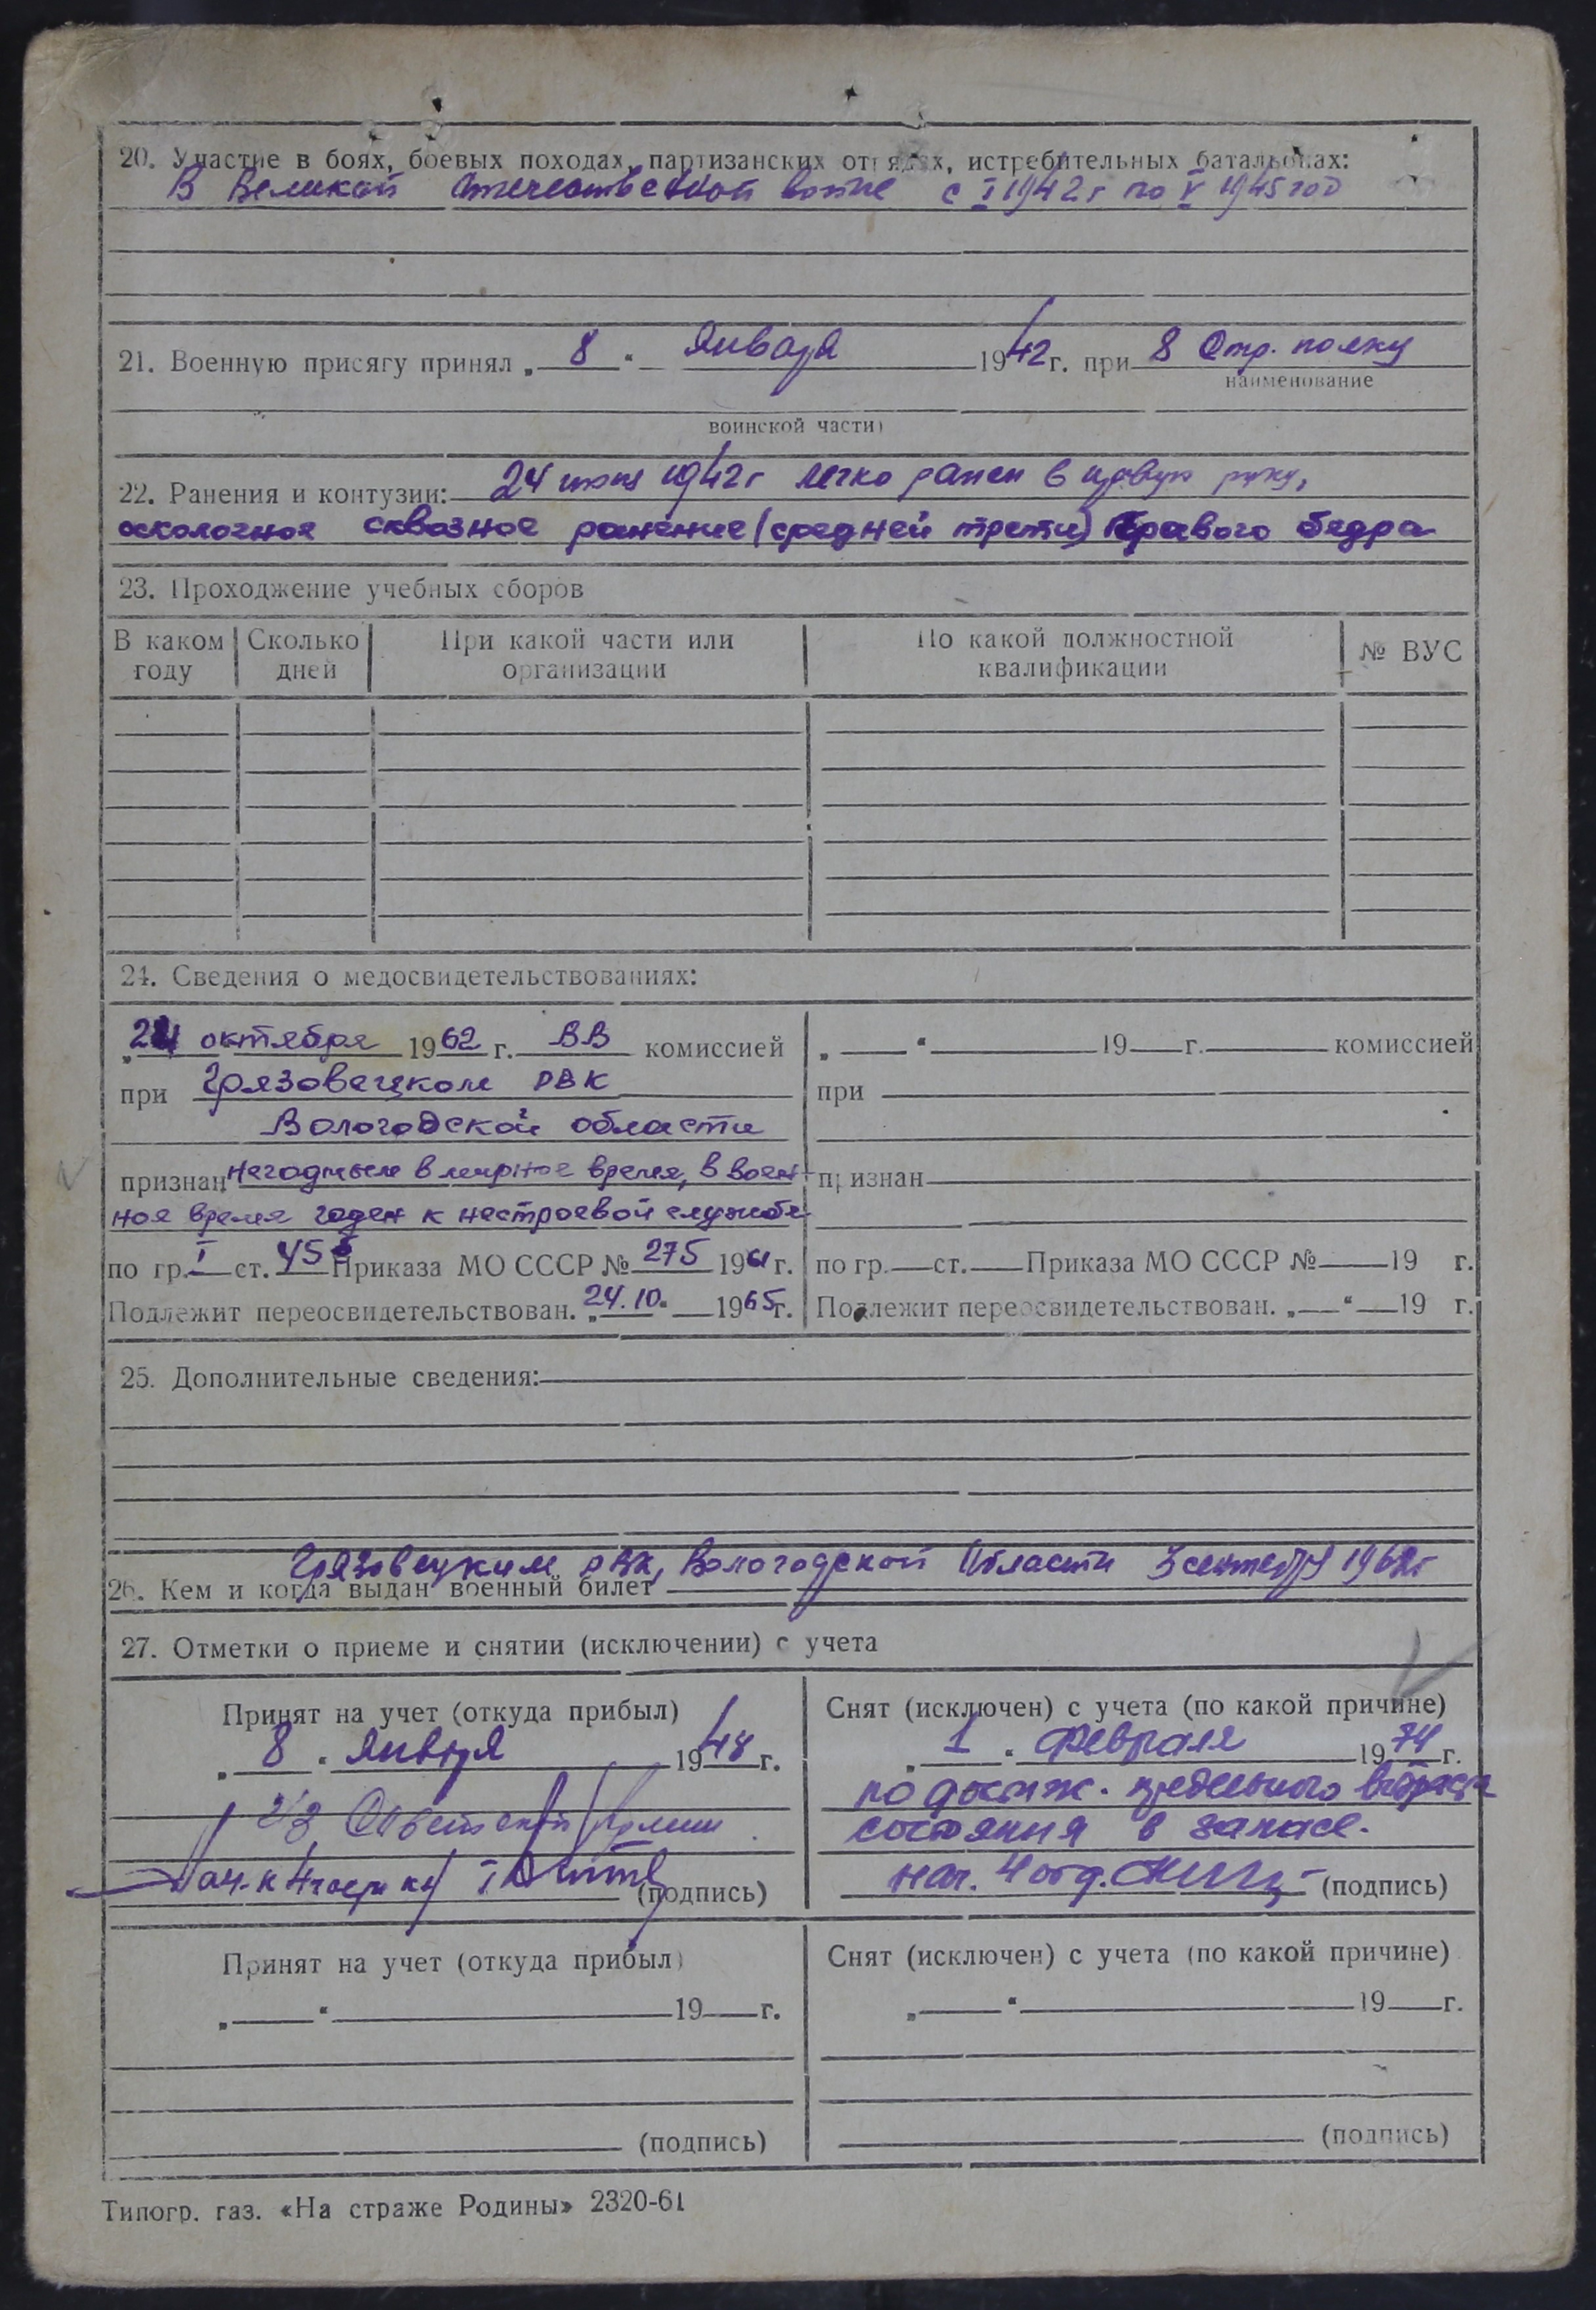 20. Участие в боях, боевых походах, партизанских отрядах, истребительных батальонах:
В Великой Отечественной войне с I 1942 г по V 1945 год
21. Военную присягу принял „ 8 “ Января 1942 г. при 8 Стр. полку
наименование
воинской части)
22. Ранения и контузии: 24 1942 г легко ранен в правую руку,
осколочное сквозное ранение (средней трети) правого бедра
23. Прохождение учебных сборов
В каком году Сколько дней При какой части или организации По какой должностной квалификации № ВУС
24. Сведения о медосвидетельствованиях:
„24 октября 1962 г. ВВ комиссией
при Грязовецком РВК
Вологодской области
признан негодным в мирное время, в воен-
ное время годен к нестроевой службе
по гр. I ст. 45б Приказа МО СССР № 275 1961 г.
Подлежит переосвидетельствован. „24.10. 1965 г.
„ “ 19 г. комиссией
при
признан
по гр. ст. Приказа МО СССР № 19 г.
Подлежит переосвидетельствован. „ “ 19 г.
25. Дополнительные сведения:
Грязовецким РВК, Вологодской Области 3 сентября 1962 г
26. Кем и когда выдан военный билет
27. Отметки о приеме и снятии (исключении) с учета
Принят на учет (откуда прибыл)
„ 8 “ Января 1948 г.
из Советской Армии
Нач-к 4 части (подпись)
Снят (исключен) с учета (по какой причине)
„ 1 “ Февраля 1974 г.
по достиж. предельного возраста
состояния в запасе.
нач. 4 отд. (подпись)
Принят на учет (откуда прибыл)
„ “ 19 г.
(подпись)
Снят (исключен) с учета (по какой причине)
„ “ 19 г.
(подпись)
Типогр. газ. «На страже Родины» 2320-61